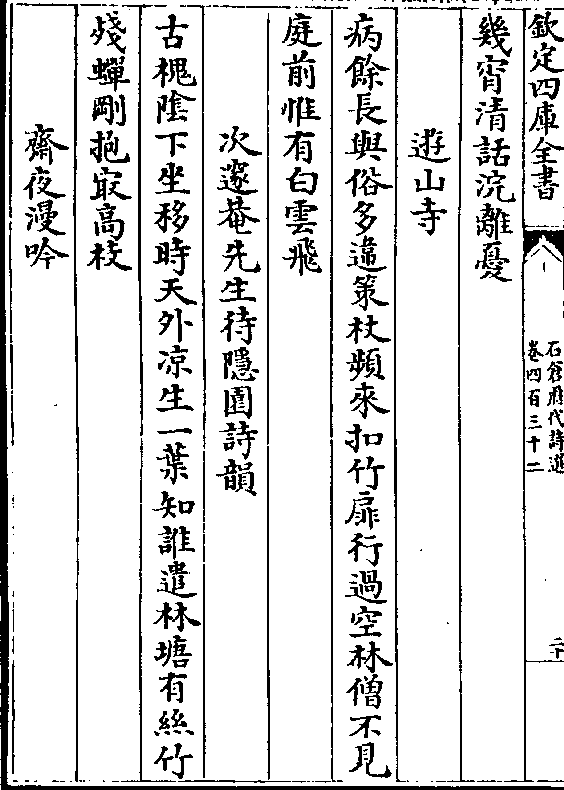 欽定四庫全書
石倉歷代詩選
卷四百三十二
二十
幾宵清話浣離憂
遊山寺
病餘長與俗多違策杖頻來扣竹扉行過空林僧不見
庭前惟有白雲飛
次邃菴先生待隱園詩韻
古槐陰下坐移時天外凉生一葉知誰遣林塘有絲竹
殘蟬剛抱㝡高枝
齋夜漫吟